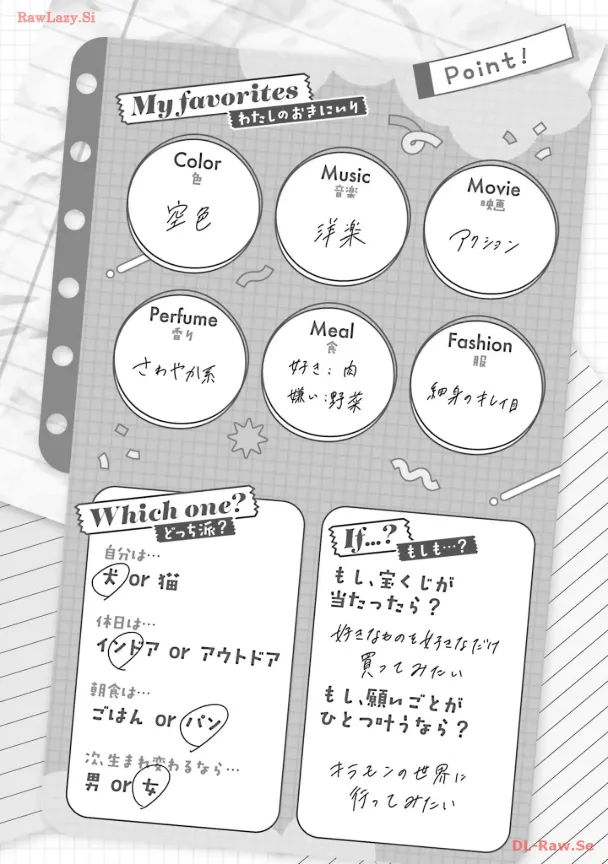 RawLazy.Si
Point!
My favorites
わたしのおきにいり
Color
色
空色
Music
音楽
洋楽
Movie
映画
アクション
Perfume
香り
さわやか系
Meal
食
好き：肉
嫌い：野菜
Fashion
服
細身のキレイ目
Which one?
どっち派？
自分は…
犬 or 猫
休日は…
インドア or アウトドア
朝食は…
ごはん or パン
次、生まれ変わるなら…
男 or 女
If...?
もしも…？
もし、宝くじが
当たったら？
好きなものを好きなだけ
買ってみたい
もし、願いごとが
ひとつ叶うなら？
キラモンの世界に
行ってみたい
DL-Raw.Se